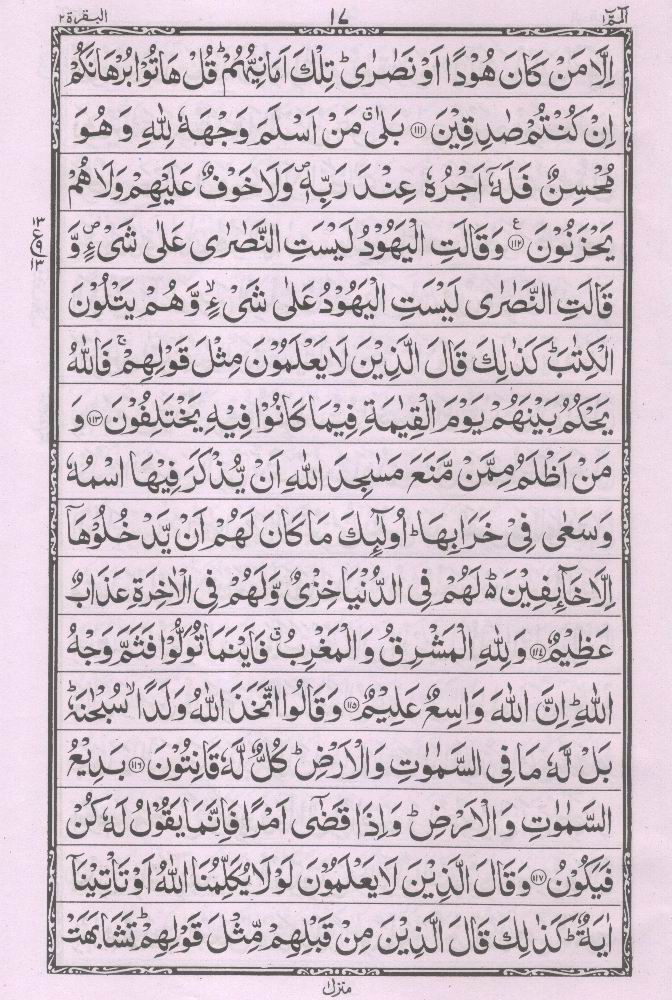 الٓمّٓ ١ ١٧ البقرة ٢
اِلَّا مَنْ كَانَ هُوْدًا اَوْ نَصٰرٰىؕ تِلْكَ اَمَانِيُّهُمْؕ قُلْ هَاتُوْا بُرْهَانَكُمْ
اِنْ كُنْتُمْ صٰدِقِيْنَ ﴿١١١﴾ بَلٰىۗ مَنْ اَسْلَمَ وَجْهَهٗ لِلّٰهِ وَ هُوَ
مُحْسِنٌ فَلَهٗۤ اَجْرُهٗ عِنْدَ رَبِّهٖ۪ وَلَا خَوْفٌ عَلَيْهِمْ وَلَا هُمْ
يَحْزَنُوْنَ ﴿١١٢﴾ ع وَقَالَتِ الْيَهُوْدُ لَيْسَتِ النَّصٰرٰى عَلٰى شَىْءٍ۪ وَّ
قَالَتِ النَّصٰرٰى لَيْسَتِ الْيَهُوْدُ عَلٰى شَىْءٍۙ وَّهُمْ يَتْلُوْنَ
الْكِتٰبَؕ كَذٰلِكَ قَالَ الَّذِيْنَ لَا يَعْلَمُوْنَ مِثْلَ قَوْلِهِمْۚ فَاللّٰهُ
يَحْكُمُ بَيْنَهُمْ يَوْمَ الْقِيٰمَةِ فِيْمَا كَانُوْا فِيْهِ يَخْتَلِفُوْنَ ﴿١١٣﴾ وَ
مَنْ اَظْلَمُ مِمَّنْ مَّنَعَ مَسٰجِدَ اللّٰهِ اَنْ يُّذْكَرَ فِيْهَا اسْمُهٗ
وَسَعٰى فِىْ خَرَابِهَاؕ اُولٰٓئِكَ مَا كَانَ لَهُمْ اَنْ يَّدْخُلُوْهَاۤ
اِلَّا خَآئِفِيْنَ۬ؕ لَهُمْ فِى الدُّنْيَا خِزْىٌ وَّلَهُمْ فِى الْاٰخِرَةِ عَذَابٌ
عَظِيْمٌ ﴿١١٤﴾ وَلِلّٰهِ الْمَشْرِقُ وَالْمَغْرِبُۗ فَاَيْنَمَا تُوَلُّوْا فَثَمَّ وَجْهُ
اللّٰهِؕ اِنَّ اللّٰهَ وَاسِعٌ عَلِيْمٌ ﴿١١٥﴾ وَقَالُوا اتَّخَذَ اللّٰهُ وَلَدًاۙ سُبْحٰنَهٗؕ
بَلْ لَّهٗ مَا فِى السَّمٰوٰتِ وَالْاَرْضِؕ كُلٌّ لَّهٗ قَانِتُوْنَ ﴿١١٦﴾ بَدِيْعُ
السَّمٰوٰتِ وَالْاَرْضِؕ وَاِذَا قَضٰٓى اَمْرًا فَاِنَّمَا يَقُوْلُ لَهٗ كُنْ
فَيَكُوْنُ ﴿١١٧﴾ وَقَالَ الَّذِيْنَ لَا يَعْلَمُوْنَ لَوْلَا يُكَلِّمُنَا اللّٰهُ اَوْ تَاْتِيْنَاۤ
اٰيَةٌؕ كَذٰلِكَ قَالَ الَّذِيْنَ مِنْ قَبْلِهِمْ مِّثْلَ قَوْلِهِمْؕ تَشَابَهَتْ
١٣
ع ٩
١٣
منزل ١